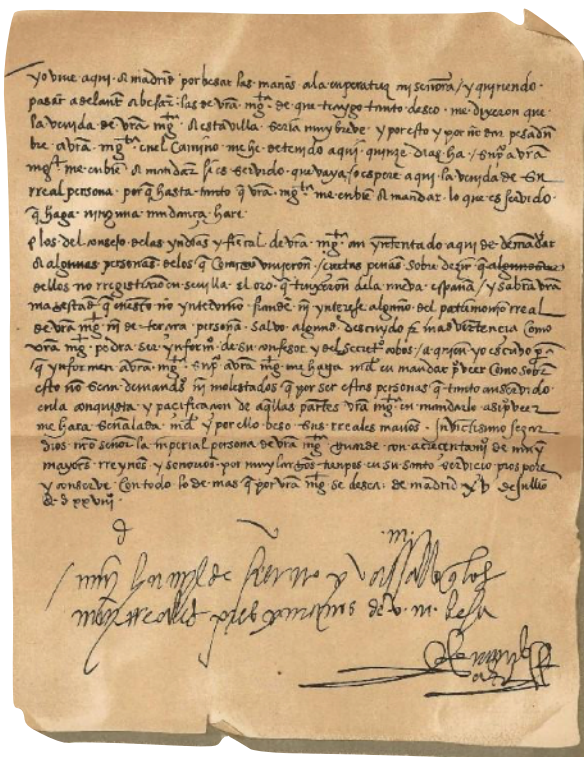 yo vine aqui a madrid por besar las manos a la enperatriz mi señora / y quiriendo
pasar adelante a besar las de vra mgt de que traygo tanto deseo me dixeron que
la venida de vra mgt a esta villa seria muy breve y por esto y por no dar pesadũ
bre a vra mgt en el camino me he detenido aqui quinze dias ha / supco a vra
mgt me enbie a mandar si es servido que vaya / o espere aqui la venida de su
rreal persona por q hasta tanto q vra mgt me enbie a mandar lo que es servido
q haga ninguna mudança hare
los del consejo de las yndias y fiscal de vra mgt an yntentado aqui de demandar
a algunas personas de los q comigo vinieron / ciertas penas sobre dezir q
dellos no rregistraron en sevilla el oro q truxeron de la nueva españa / y sabra vra
magestad q en esto no yntervino fraude ni ynterese alguno del patrimonio rreal
de vra mgt ni de tercera persona salvo algund descuydo e inadvertencia como
vra mgt podra ser ynformado de su confesor y del secretº cobos / a quien yo escrivo pa
q ynformen a vra mgt supco a vra mgt me haga md en mandar proveer como sobre
esto no sean demandados ni molestados q por ser estas personas q tanto an servido
en la conquista y pacificacion de aqllas partes vra mgt en mandarlo asi proveer
me hara señalada md y por ello beso sus rreales manos. Invictisimo señor
dios nro señor la inperial persona de vra mgt guarde con acrecentamiº de muy
mayores rreynos y señorios por muy largos tienpos en su santo servicio prospere
y conserve con todo lo de mas q por vra mgt se desea: de madrid xv de jullio
de dxxviiiº
.m.
muy humylde syervo y vasallo q los
muy reales pies y manos de v. m. besa
Hernando
cortes